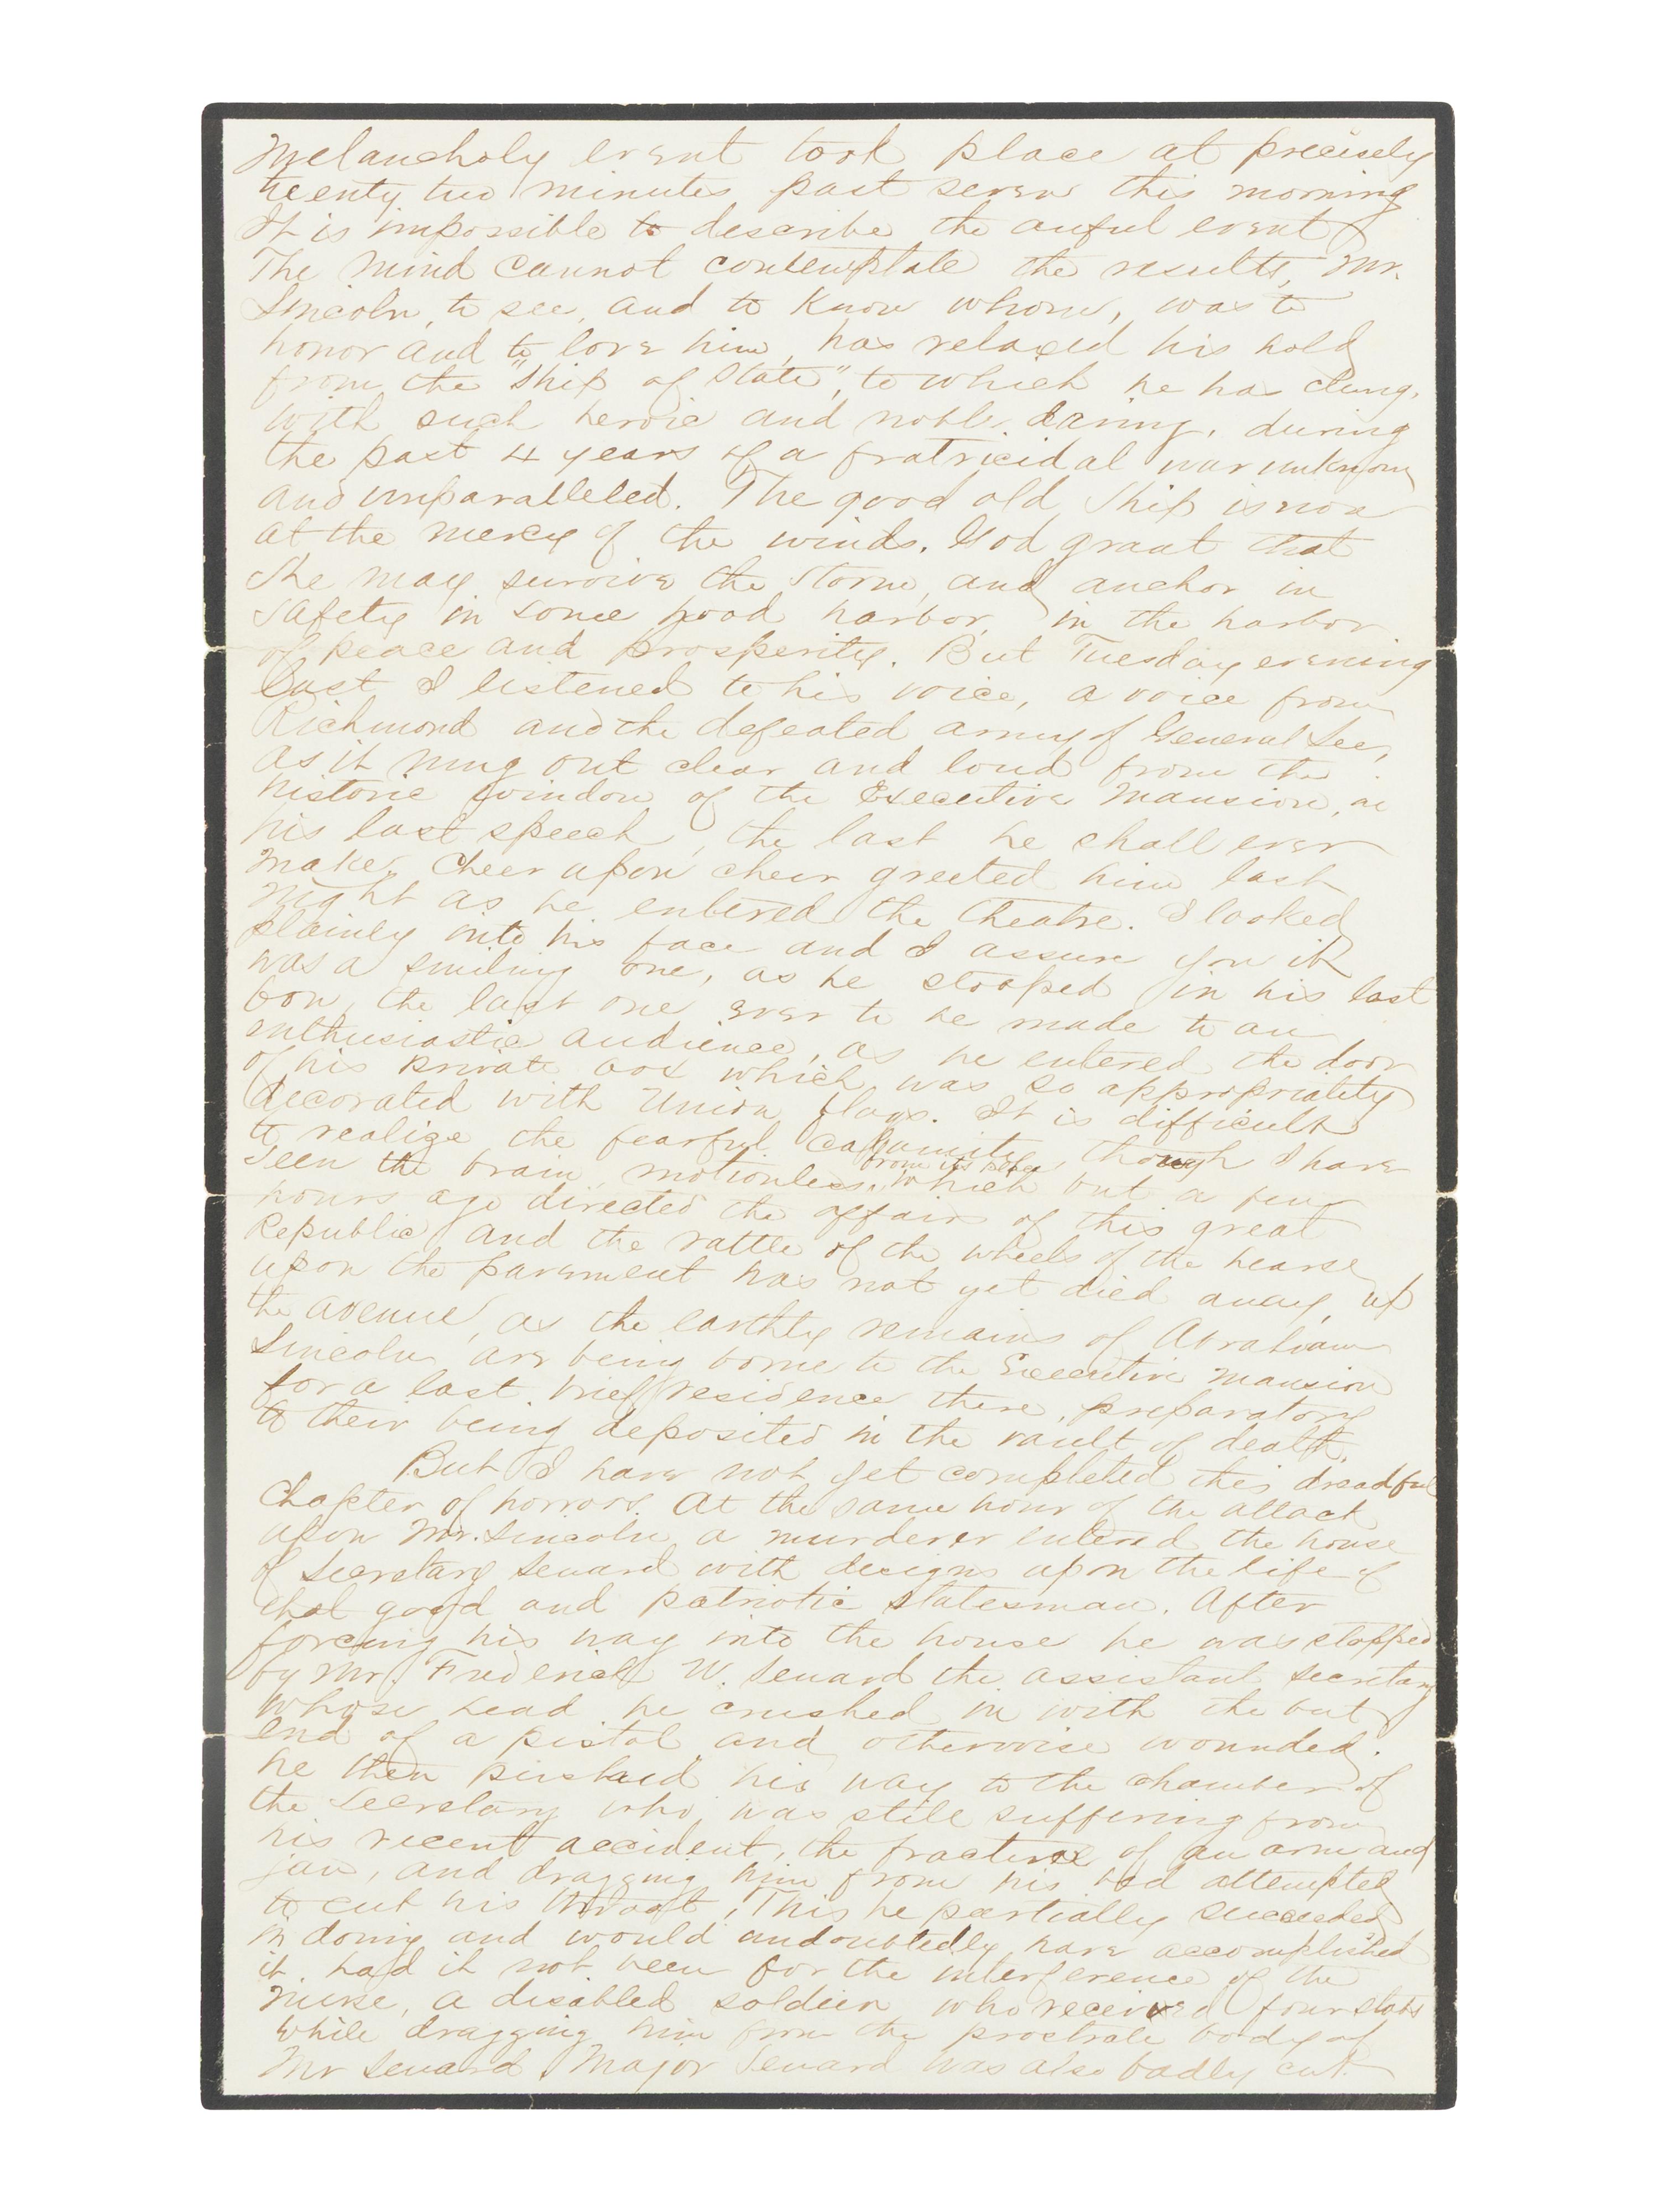 Melancholy event took place at precisely
twenty two minutes past seven this morning
It is impossible to describe the awful event
The mind cannot contemplate the results, Mr.
Lincoln, to see, and to know whom, was to
honor and to love him, has relaxed his hold
from the "Ship of State", to which he has clung,
with such heroic and noble daring, during
the past 4 years of a fratricidal war unknown
and unparalleled. The good old Ship is now
at the mercy of the winds. God grant that
she may survive the storm, and anchor in
safety in some good harbor, in the harbor
of peace and prosperity. But Tuesday evening
last I listened to his voice, a voice from
Richmond and the defeated army of General Lee,
as it rung out clear and loud from the
historic window of the Executive Mansion, in
his last speech, the last he shall ever
make. Cheer upon cheer greeted him last
night as he entered the theatre. I looked
plainly into his face and I assure you it
was a smiling one, as he stooped in his last
bow, the last one ever to be made to an
enthusiastic audience, as he entered the door
of his private box which was so appropriately
decorated with Union flags. It is difficult
to realize the fearful calamity, though I have
seen the brain, motionless, from its which but a few
hours ago directed the affairs of this great
Republic and the rattle of the wheels of the hearse
upon the pavement has not yet died away, up
the avenue, as the earthly remains of Abraham
Lincoln are being borne to the Executive Mansion
for a last brief residence there, preparatory
to their being deposited in the vault of death.
But I have not yet completed this dreadful
Chapter of horrors. At the same hour of the attack
upon Mr. Lincoln a murderer entered the house
of Secretary Seward with designs upon the life of
that good and patriotic statesman. After
forcing his way into the house he was stopped
by Mr. Frederick W. Seward the assistant secretary
whose head he crushed in with the but
end of a pistol and otherwise wounded.
he then pushed his way to the chamber of
the Secretary who was still suffering from
his recent accident, the fracture of an arm and
jaw, and dragging him from his bed attempted
to cut his throat, This he partially succeeded
in doing and would undoubtedly have accomplished
it, had it not been for the interference of the
nurse, a disabled soldier, who received four stabs
while dragging him from the prostrate body of
Mr Seward. Major Seward was also badly cut.